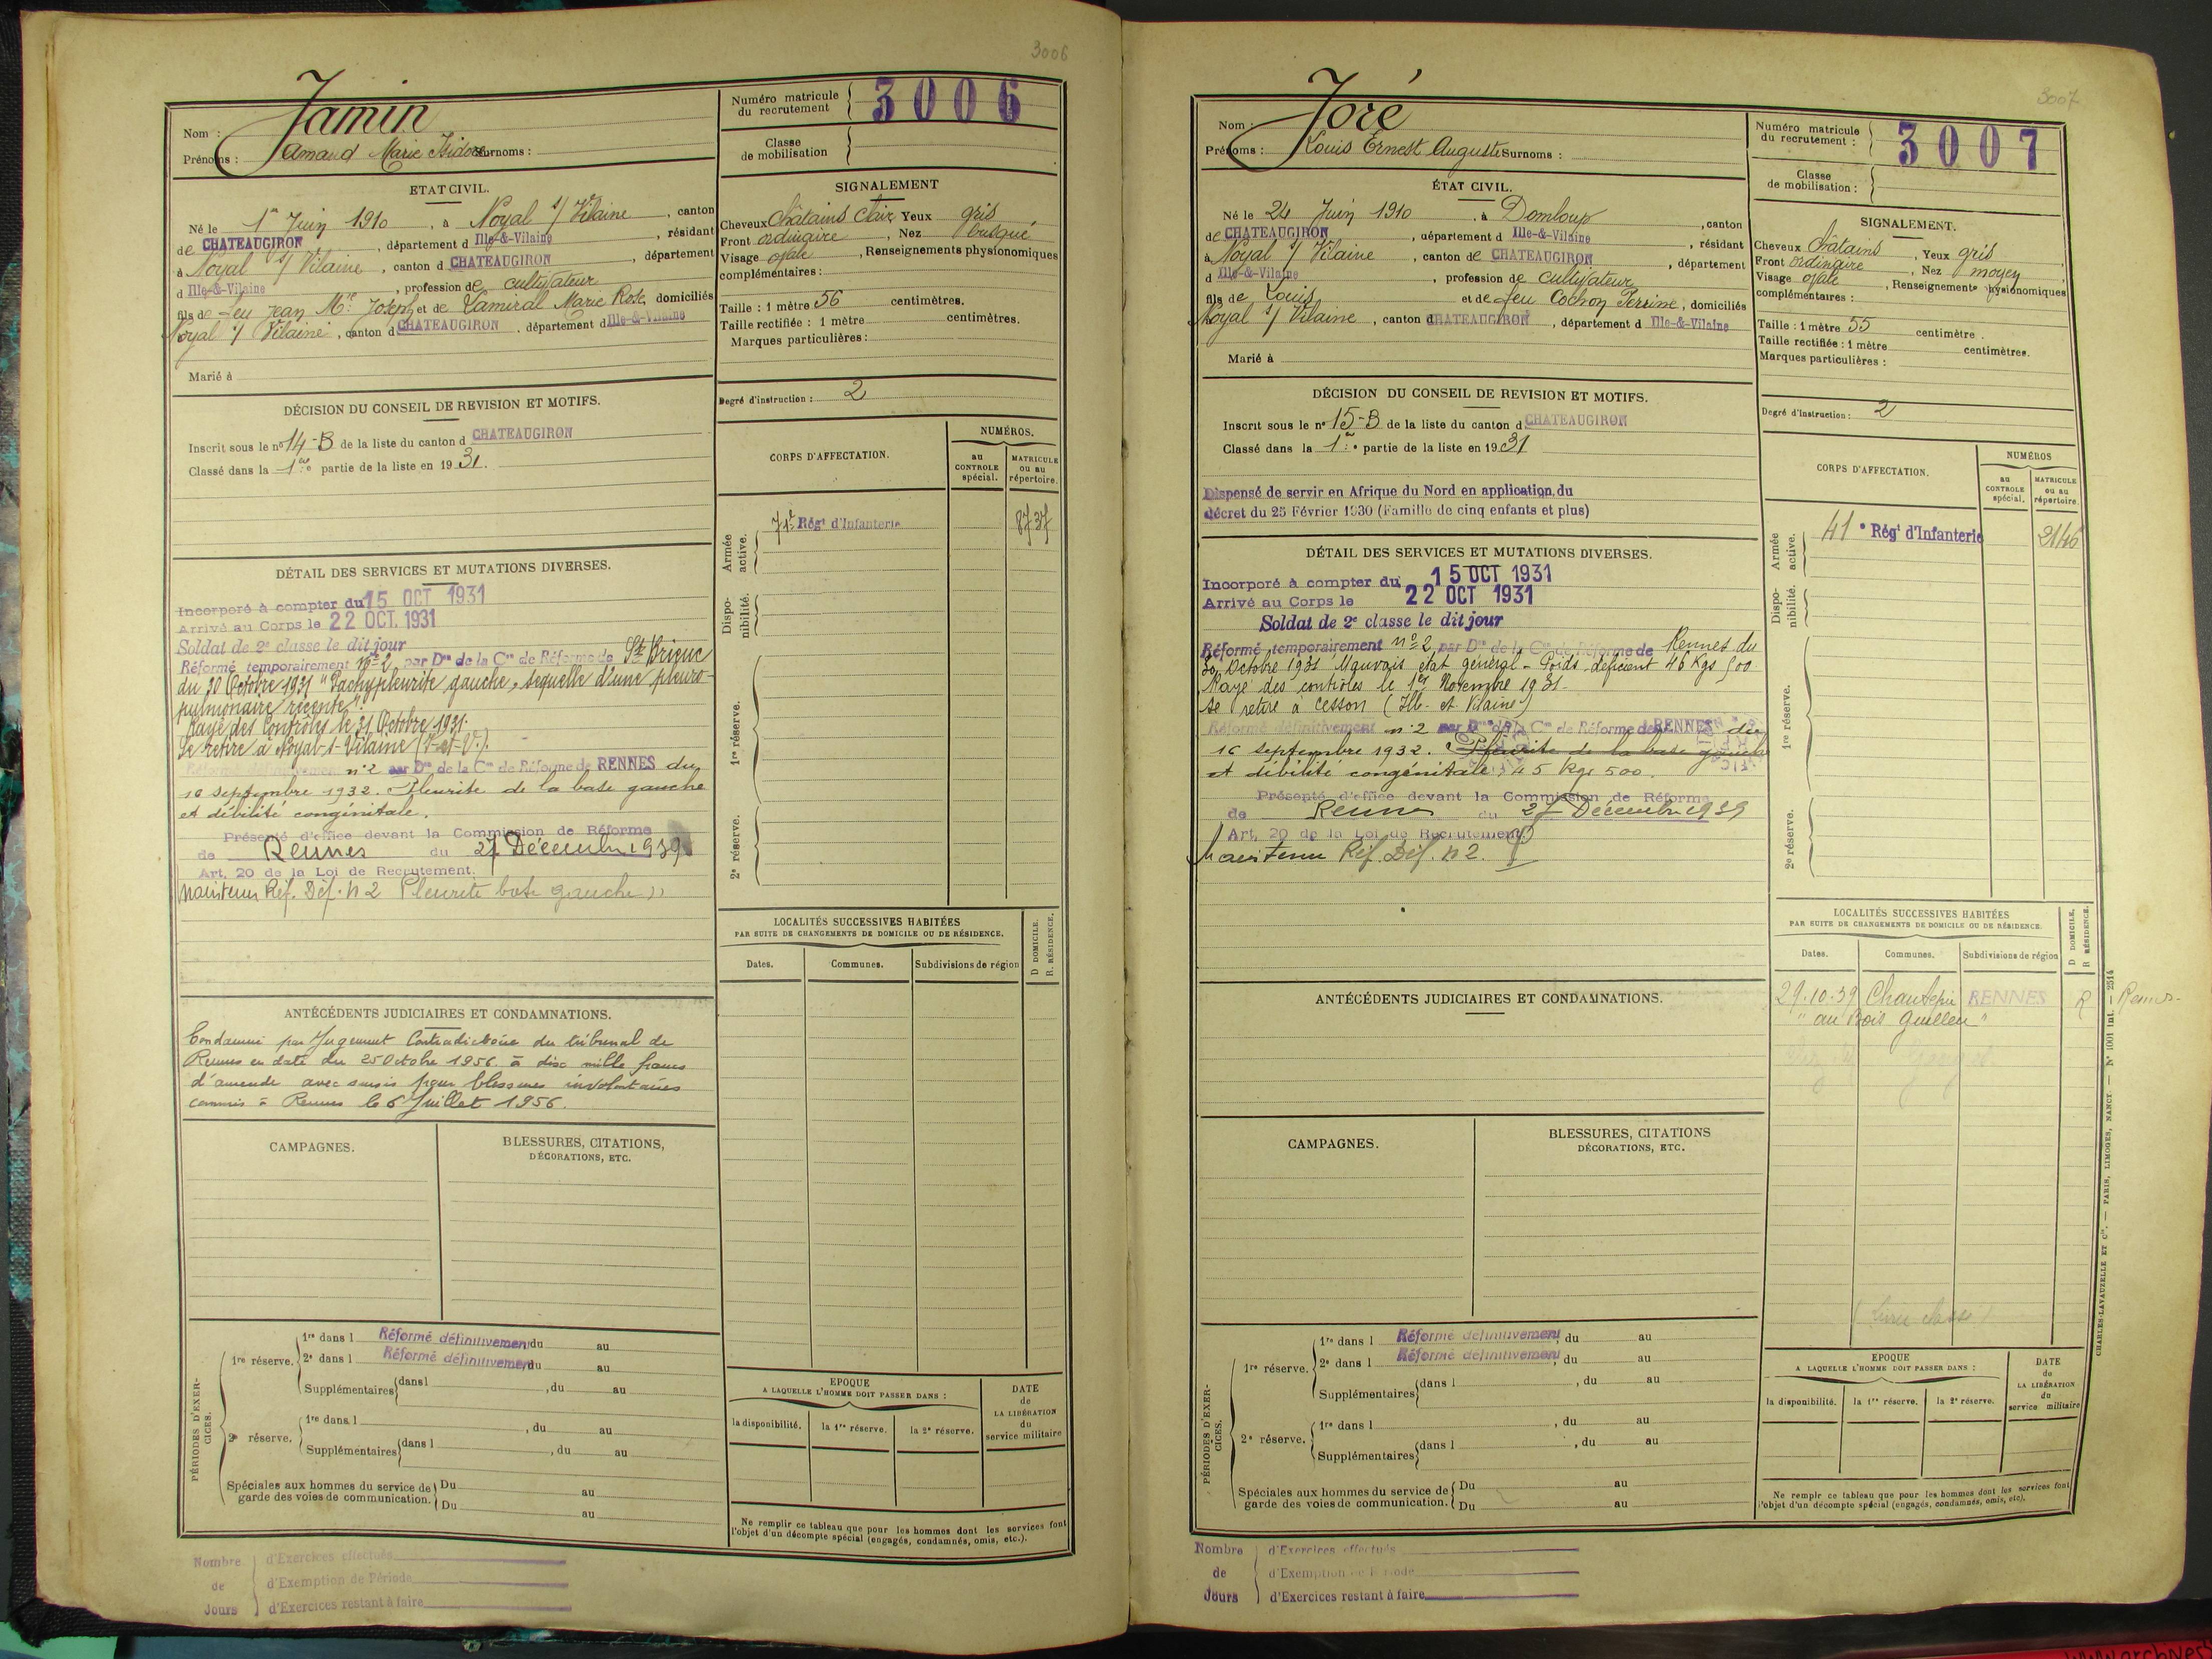 3006
Nom : Jamin
Prénoms : Amand Marie Isidore Surnoms :
Numéro matricule du recrutement { 3006
Classe de mobilisation {
ETAT CIVIL.
Né le 1er Juin 1910, à Noyal s/ Vilaine, canton
de CHATEAUGIRON, département d Ille-&-Vilaine, résidant
à Noyal s/ Vilaine, canton d CHATEAUGIRON, département
d Ille-&-Vilaine, profession de cultivateur
fils de feu Jean Mie Joseph et de Lamiral Marie Rose, domiciliés
Noyal s/ Vilaine, canton d CHATEAUGIRON, département d Ille-&-Vilaine
Marié à
SIGNALEMENT
Cheveux Châtains Clair Yeux gris
Front ordinaire, Nez busqué
Visage ovale, Renseignements physionomiques
complémentaires :
Taille : 1 mètre 56 centimètres.
Taille rectifiée : 1 mètre centimètres.
Marques particulières :
Degré d'instruction : 2
DÉCISION DU CONSEIL DE REVISION ET MOTIFS.
Inscrit sous le no 14-B de la liste du canton d CHATEAUGIRON
Classé dans la 1re partie de la liste en 1931.
CORPS D'AFFECTATION.
NUMÉROS.
au CONTROLE spécial.
MATRICULE ou au répertoire.
Armée active.
71e Régt d'Infanterie 8737
Disponibilité.
1re réserve.
2e réserve.
DÉTAIL DES SERVICES ET MUTATIONS DIVERSES.
Incorporé à compter du 15 OCT 1931
Arrivé au Corps le 22 OCT. 1931
Soldat de 2e classe le dit jour
Réformé temporairement no 2 par Don de la Con de Réforme de St Brieuc
du 30 Octobre 1931 "Pachypleurite gauche, séquelle d'une pleuro-
pulmonaire récente".
Rayé des Contrôles le 31 Octobre 1931.
Se retire à Noyal-s-Vilaine (I-et-V).
Réformé définitivement n°2 par Don de la Con de Réforme de RENNES du
16 septembre 1932. Pleurite de la base gauche
et débilité congénitale.
Présenté d'office devant la Commission de Réforme
de Rennes du 27 Décembre 1939
Art. 20 de la Loi de Recrutement.
Maintenu Réf. Déf. n 2 Pleurite base gauche »
ANTÉCÉDENTS JUDICIAIRES ET CONDAMNATIONS.
Condamné par Jugement Contradictoire du tribunal de
Rennes en date du 25 Octobre 1956 à dix mille francs
d'amende avec sursis pour blessures involontaires
commis à Rennes le 6 Juillet 1956.
LOCALITÉS SUCCESSIVES HABITÉES
PAR SUITE DE CHANGEMENTS DE DOMICILE OU DE RÉSIDENCE.
Dates.
Communes.
Subdivisions de région
D DOMICILE.
R. RÉSIDENCE.
CAMPAGNES.
BLESSURES, CITATIONS,
DÉCORATIONS, ETC.
PÉRIODES D'EXERCICES.
1re réserve.
1re dans l Réformé définitivement du au
2e dans l Réformé définitivement du au
Supplémentaires { dans l , du au
2e réserve.
1re dans l , du au
Supplémentaires { dans l , du au
Spéciales aux hommes du service de garde des voies de communication.
Du au
Du au
EPOQUE
A LAQUELLE L'HOMME DOIT PASSER DANS :
la disponibilité.
la 1re réserve.
la 2e réserve.
DATE de LA LIBÉRATION du service militaire
Ne remplir ce tableau que pour les hommes dont les services font
l'objet d'un décompte spécial (engagés, condamnés, omis, etc.).
Nombre de Jours
d'Exercices effectués
d'Exemption de Période
d'Exercices restant à faire
3007
Nom : Joré
Prénoms : Louis Ernest Auguste Surnoms :
Numéro matricule du recrutement : { 3007
Classe de mobilisation : {
ÉTAT CIVIL.
Né le 24 Juin 1910, à Domloup, canton
de CHATEAUGIRON, département d Ille-&-Vilaine, résidant
à Noyal s/ Vilaine, canton de CHATEAUGIRON, département
d Ille-&-Vilaine, profession de cultivateur
fils de Louis et de feu Cochon Perrine, domiciliés
Noyal s/ Vilaine, canton d CHATEAUGIRON, département d Ille-&-Vilaine
Marié à
SIGNALEMENT.
Cheveux Châtains, Yeux gris,
Front ordinaire, Nez moyen
Visage ovale, Renseignements physionomiques
complémentaires :
Taille : 1 mètre 55 centimètre.
Taille rectifiée : 1 mètre centimètres.
Marques particulières :
Degré d'instruction : 2
DÉCISION DU CONSEIL DE REVISION ET MOTIFS.
Inscrit sous le no 15-B de la liste du canton d CHATEAUGIRON
Classé dans la 1re partie de la liste en 1931
Dispensé de servir en Afrique du Nord en application du
décret du 25 Février 1930 (Famille de cinq enfants et plus)
CORPS D'AFFECTATION.
NUMÉROS
au CONTROLE spécial.
MATRICULE ou au répertoire.
Armée active.
41e Régt d'Infanterie 2146
Disponibilité.
1re réserve.
2e réserve.
DÉTAIL DES SERVICES ET MUTATIONS DIVERSES.
Incorporé à compter du 15 OCT 1931
Arrivé au Corps le 22 OCT 1931
Soldat de 2e classe le dit jour
Réformé temporairement no 2 par Don de la Con de Réforme de Rennes du
30 Octobre 1931 Mauvais état général - Poids déficient 46 Kgs 500
Rayé des contrôles le 1er Novembre 1931.
Se retire à Cesson (Ille-et-Vilaine)
Réformé définitivement n°2 par Don de la Con de Réforme de RENNES du
16 septembre 1932. Pleurite de la base gauche
et débilité congénitale, 45 Kgs 500.
Présenté d'office devant la Commission de Réforme
de Rennes du 27 Décembre 1939
Art. 20 de la Loi de Recrutement
Maintenu Réf. Déf. n 2.
ANTÉCÉDENTS JUDICIAIRES ET CONDAMNATIONS.
LOCALITÉS SUCCESSIVES HABITÉES
PAR SUITE DE CHANGEMENTS DE DOMICILE OU DE RÉSIDENCE.
Dates.
Communes.
Subdivisions de région
D DOMICILE.
R RÉSIDENCE.
29.10.39 Chantepie RENNES R Rennes
"au Bois
CAMPAGNES.
BLESSURES, CITATIONS
DÉCORATIONS, ETC.
PÉRIODES D'EXERCICES.
1re réserve.
1re dans l Réformé définitivement, du au
2e dans l Réformé définitivement, du au
Supplémentaires { dans l , du au
2e réserve.
1re dans l , du au
Supplémentaires { dans l , du au
Spéciales aux hommes du service de garde des voies de communication.
Du au
Du au
EPOQUE
A LAQUELLE L'HOMME DOIT PASSER DANS :
la disponibilité.
la 1re réserve.
la 2e réserve.
DATE de LA LIBÉRATION du service militaire
Ne remplr ce tableau que pour les hommes dont les services font
l'objet d'un décompte spécial (engagés, condamnés, omis, etc).
CHARLES-LAVAUZELLE ET Cie. — PARIS, LIMOGES, NANCY. — N° 1001 int. — 2514
Nombre de Jours
d'Exercices effectués
d'Exemption de Période
d'Exercices restant à faire